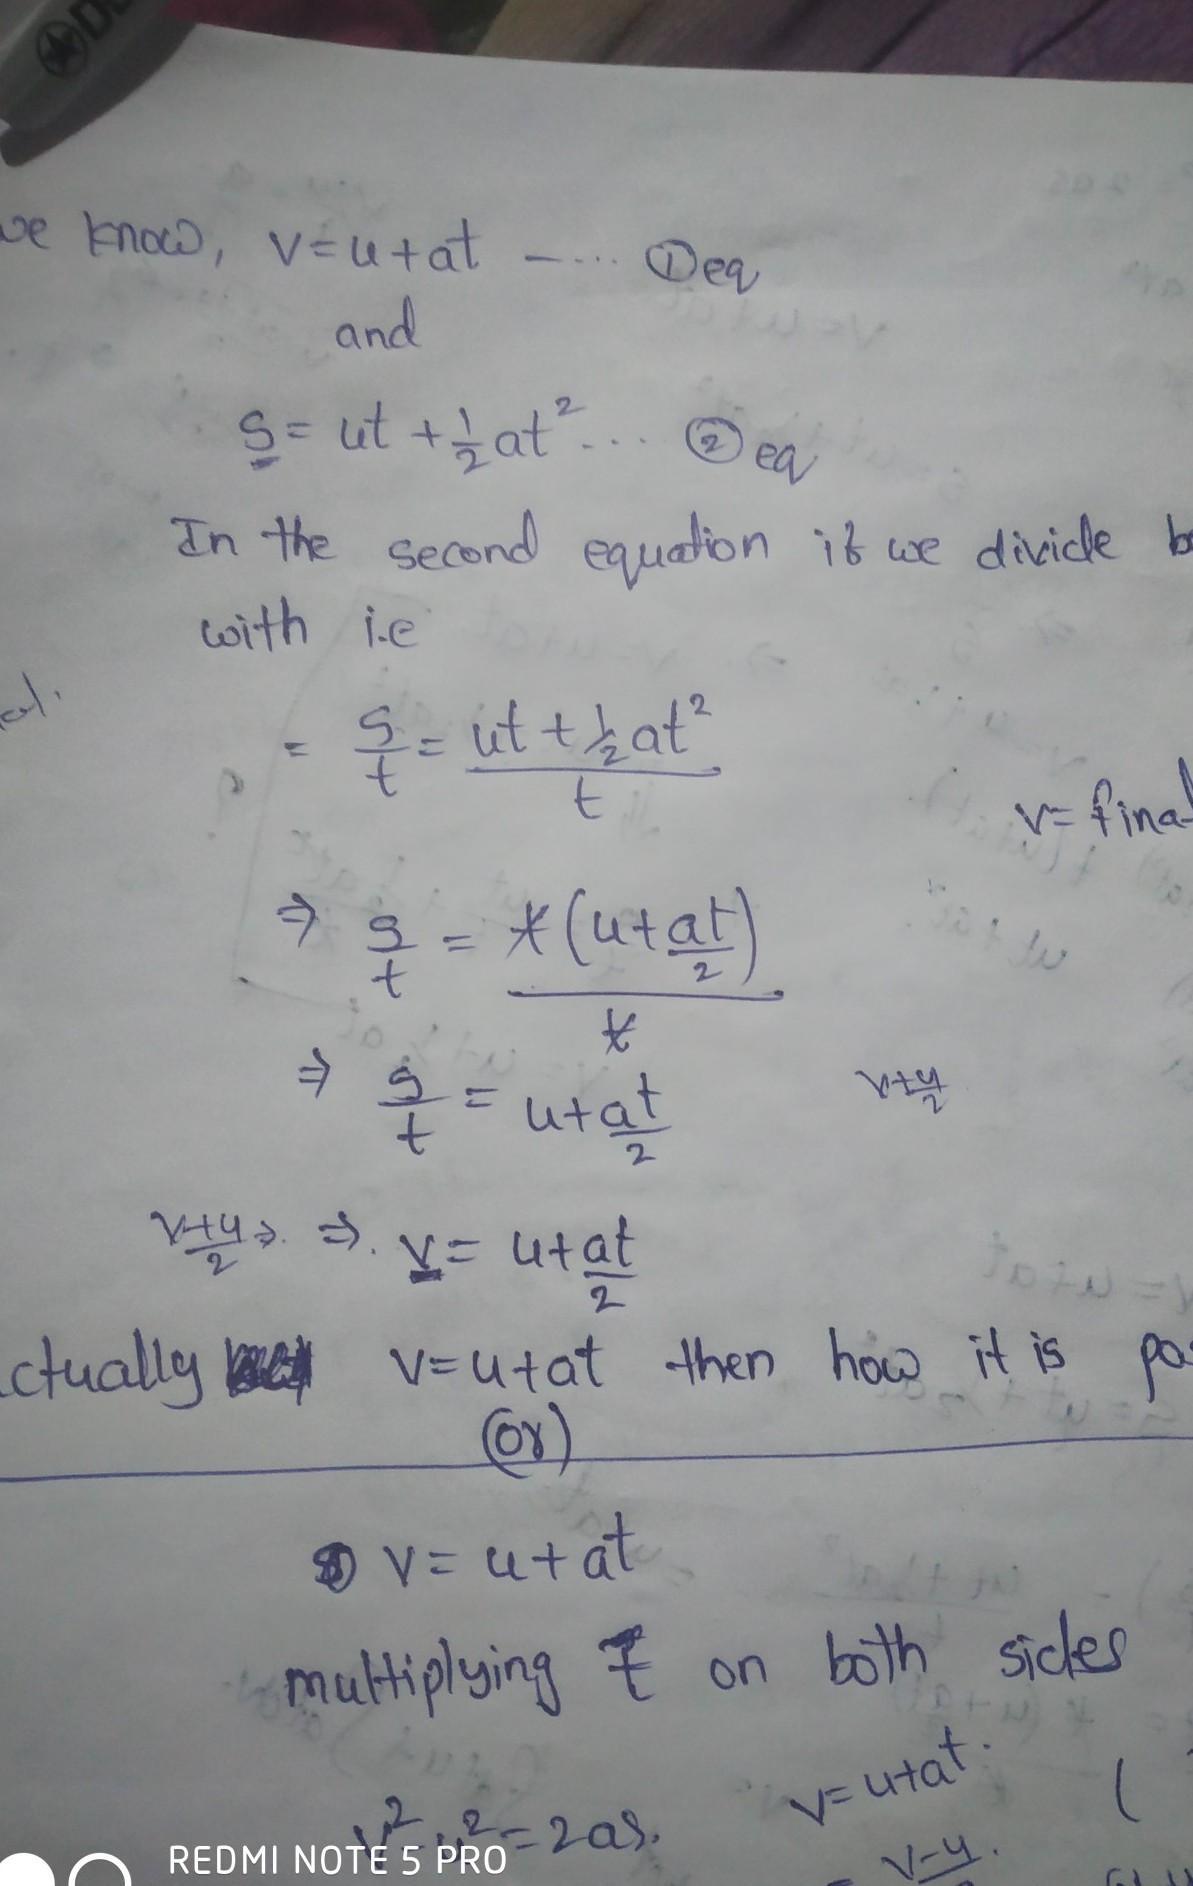 we know, v=u+at -.... ① eq
and
s = ut + 1/2 at² ... ② eq
In the second equation if we divide
with i.e
= s/t = ut + 1/2 at² / t
v= final
⇒ s/t = t(u+at/2) / t
⇒ s/t = u+at/2
v+u/2
v+u/2 ⇒ ⇒. v = u+at/2
actually v=u+at then how it is
(or)
v = u+at
multiplying t on both sides
v=u+at.
v²-u²=2as.
v-u.
REDMI NOTE 5 PRO